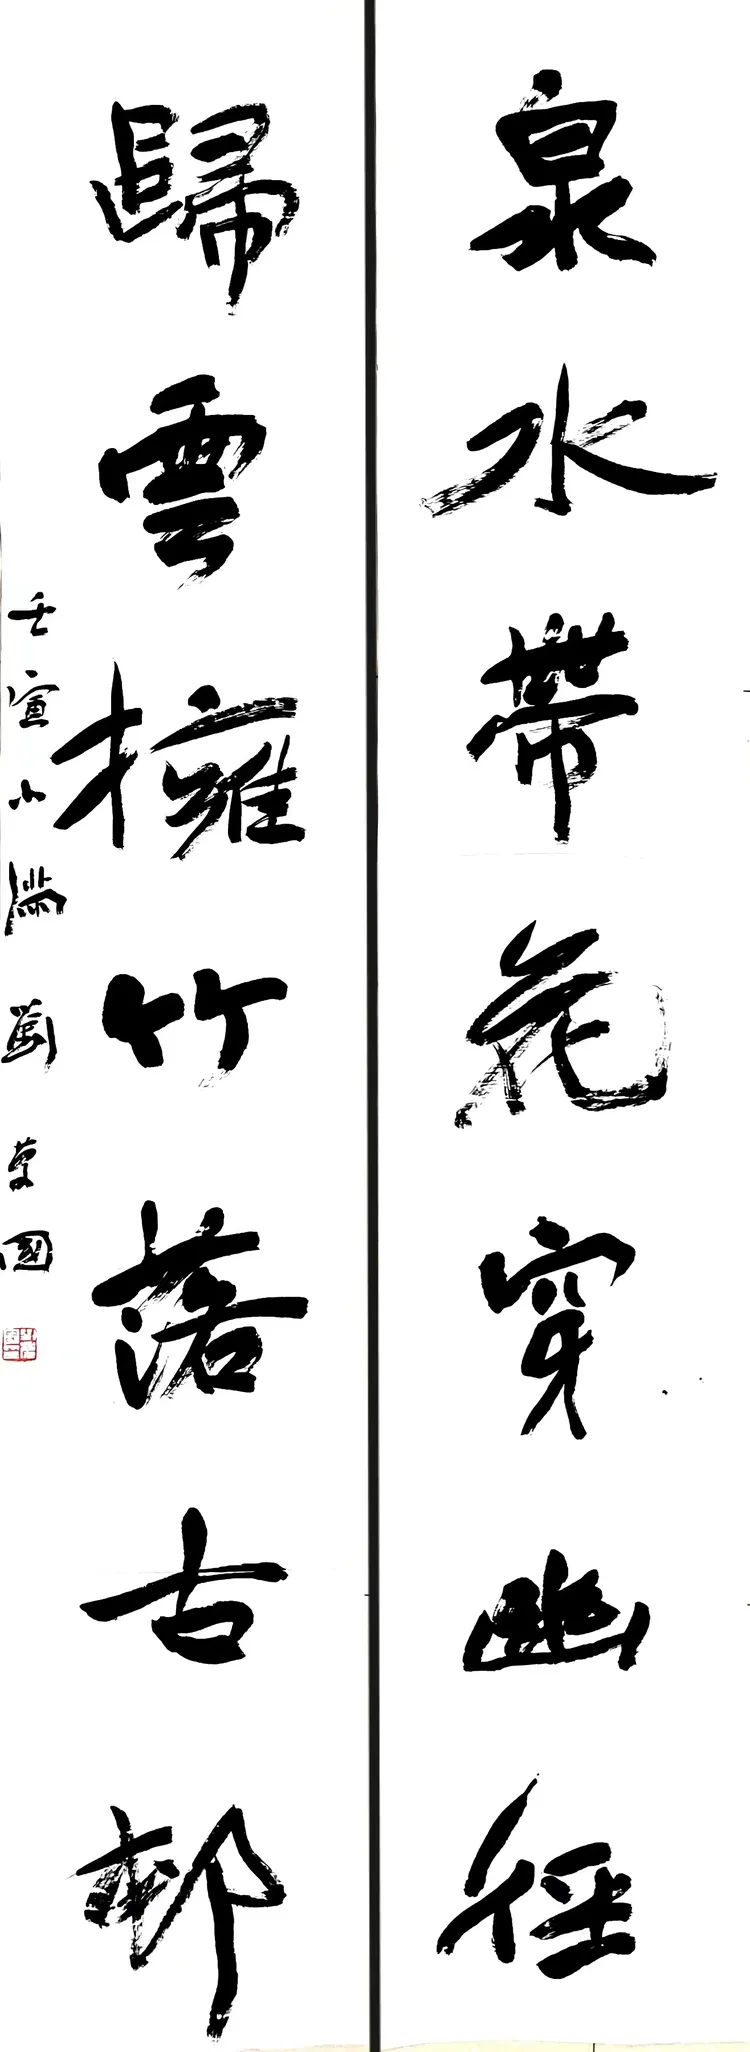 泉水帶花穿幽徑
歸雲擁竹落古邨
壬寅小滿劉國